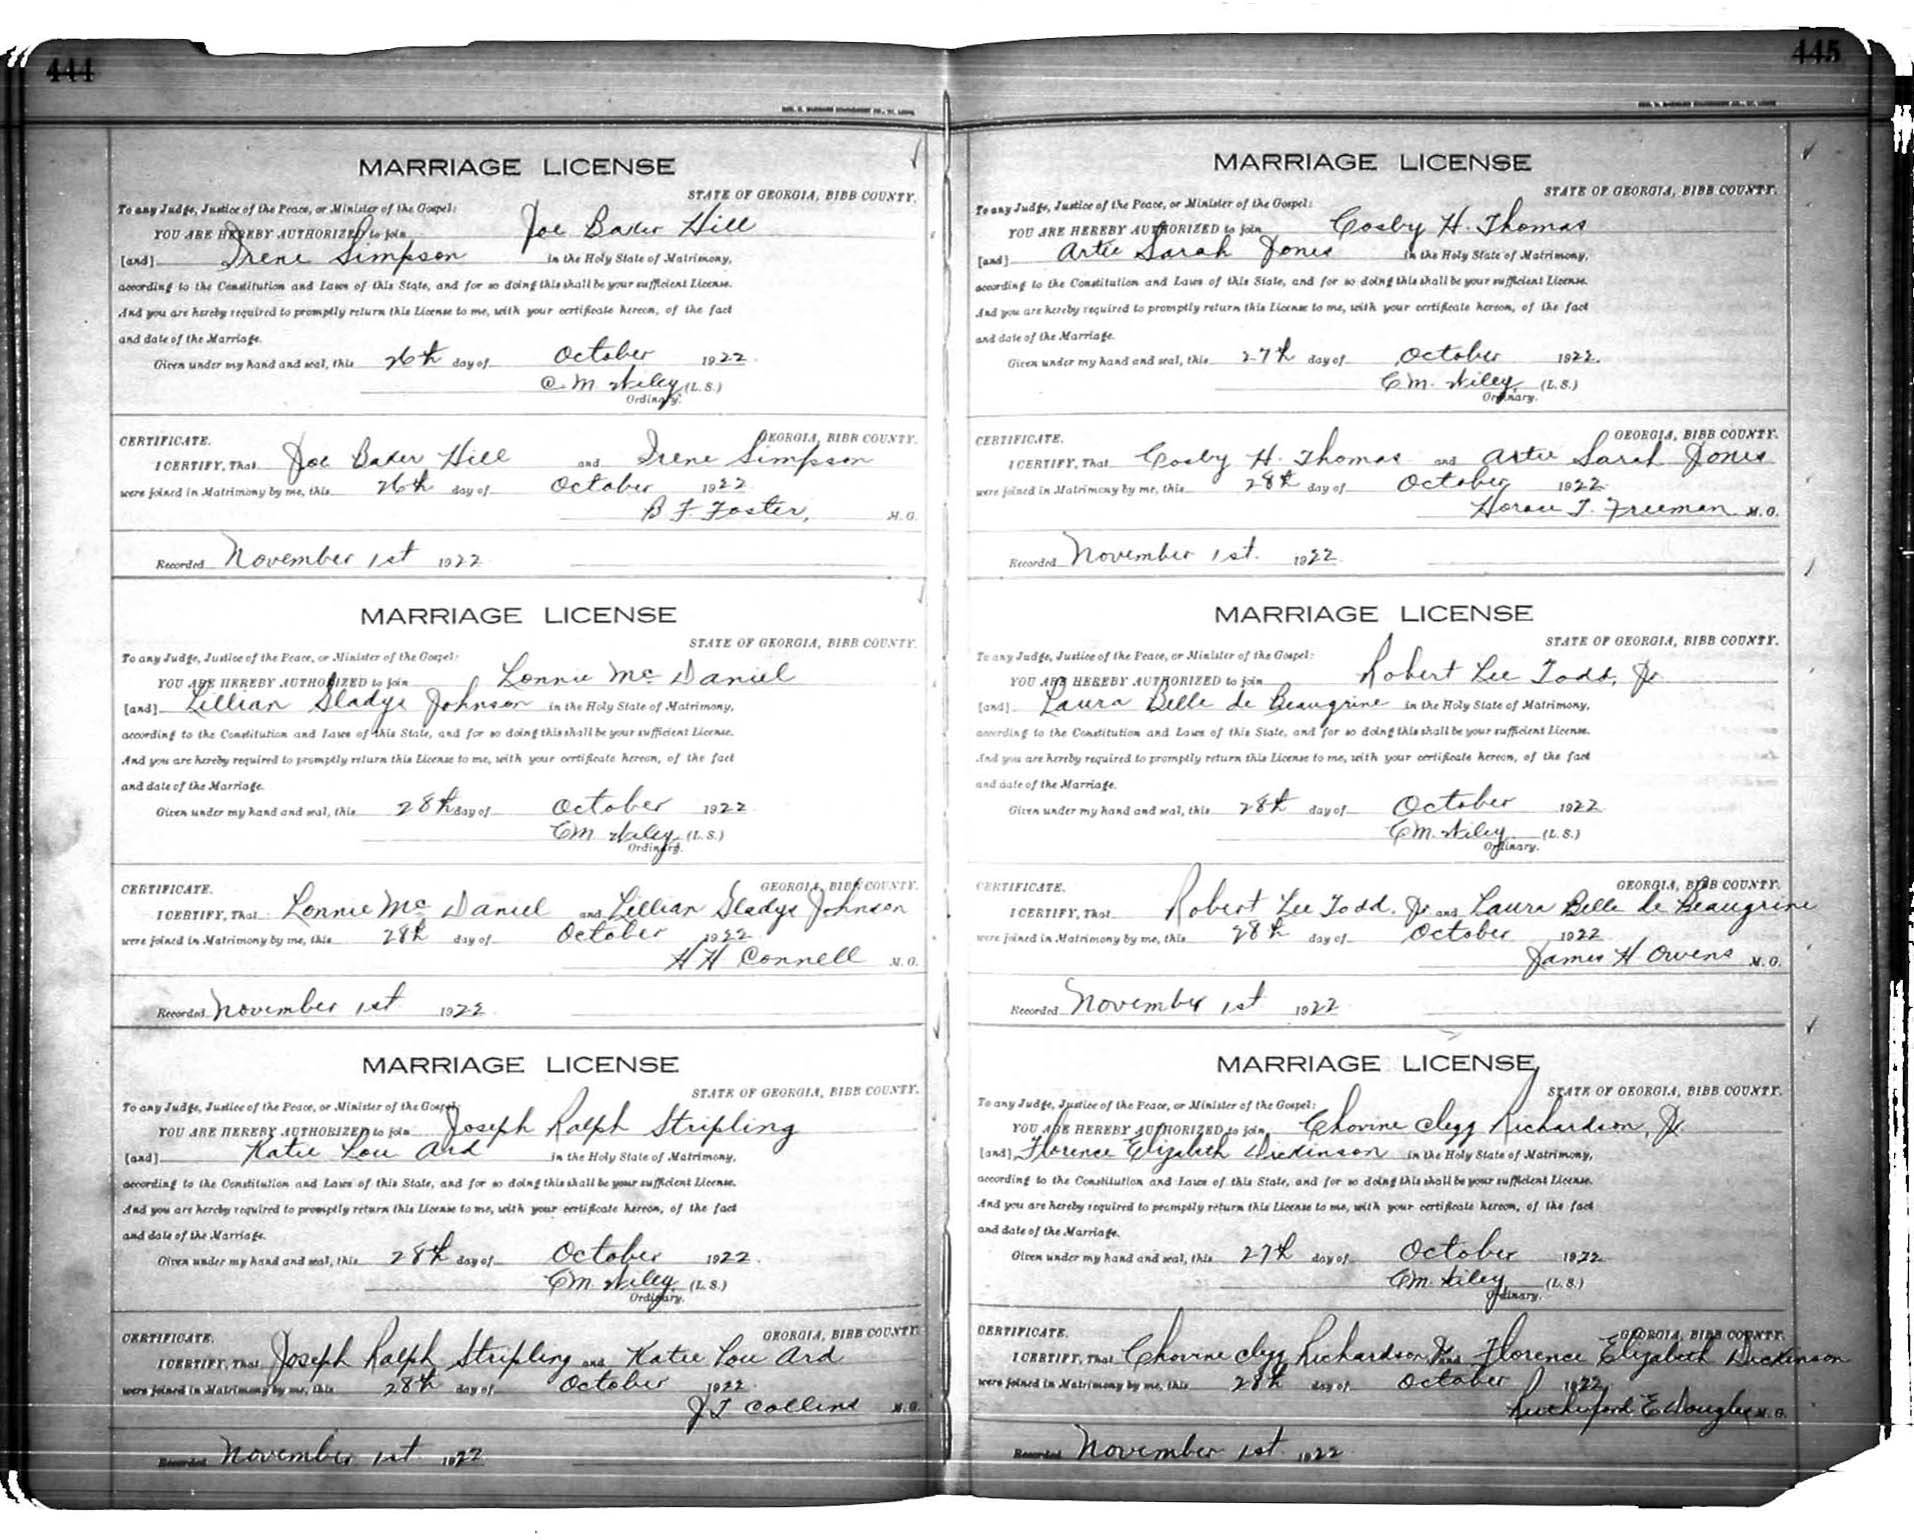 444
MARRIAGE LICENSE
STATE OF GEORGIA, BIBB COUNTY.
To any Judge, Justice of the Peace, or Minister of the Gospel:
YOU ARE HEREBY AUTHORIZED to join Joe Baker Hill
[and] Irene Simpson in the Holy State of Matrimony,
according to the Constitution and Laws of this State, and for so doing this shall be your sufficient License.
And you are hereby required to promptly return this License to me, with your certificate hereon, of the fact
and date of the Marriage.
Given under my hand and seal, this 26th day of October 1922.
C. M. Wiley (L. S.)
Ordinary.
CERTIFICATE. GEORGIA, BIBB COUNTY.
I CERTIFY, That Joe Baker Hill and Irene Simpson
were joined in Matrimony by me, this 26th day of October 1922
B F Foster, M. G.
Recorded November 1st 1922
MARRIAGE LICENSE
STATE OF GEORGIA, BIBB COUNTY.
To any Judge, Justice of the Peace, or Minister of the Gospel:
YOU ARE HEREBY AUTHORIZED to join Lonnie Mc Daniel
[and] Lillian Gladys Johnson in the Holy State of Matrimony,
according to the Constitution and Laws of this State, and for so doing this shall be your sufficient License.
And you are hereby required to promptly return this License to me, with your certificate hereon, of the fact
and date of the Marriage.
Given under my hand and seal, this 28th day of October 1922
C M Wiley (L. S.)
Ordinary.
CERTIFICATE. GEORGIA, BIBB COUNTY.
I CERTIFY, That Lonnie Mc Daniel and Lillian Gladys Johnson
were joined in Matrimony by me, this 28th day of October 1922
H H Connell M. G.
Recorded November 1st 1922
MARRIAGE LICENSE
STATE OF GEORGIA, BIBB COUNTY.
To any Judge, Justice of the Peace, or Minister of the Gospel:
YOU ARE HEREBY AUTHORIZED to join Joseph Ralph Stripling
[and] Katie Lou Ard in the Holy State of Matrimony,
according to the Constitution and Laws of this State, and for so doing this shall be your sufficient License.
And you are hereby required to promptly return this License to me, with your certificate hereon, of the fact
and date of the Marriage.
Given under my hand and seal, this 28th day of October 1922.
C M Wiley (L. S.)
Ordinary.
CERTIFICATE. GEORGIA, BIBB COUNTY.
I CERTIFY, That Joseph Ralph Stripling and Katie Lou Ard
were joined in Matrimony by me, this 28th day of October 1922
J T Collins M. G.
Recorded November 1st 1922
445
MARRIAGE LICENSE
STATE OF GEORGIA, BIBB COUNTY.
To any Judge, Justice of the Peace, or Minister of the Gospel:
YOU ARE HEREBY AUTHORIZED to join Cosby H. Thomas
[and] Artie Sarah Jones in the Holy State of Matrimony,
according to the Constitution and Laws of this State, and for so doing this shall be your sufficient License.
And you are hereby required to promptly return this License to me, with your certificate hereon, of the fact
and date of the Marriage.
Given under my hand and seal, this 27th day of October 1922.
C M. Wiley (L. S.)
Ordinary.
CERTIFICATE. GEORGIA, BIBB COUNTY.
I CERTIFY, That Cosby H. Thomas and Artie Sarah Jones
were joined in Matrimony by me, this 28th day of October 1922
Horace T. Freeman M. G.
Recorded November 1st. 1922
MARRIAGE LICENSE
STATE OF GEORGIA, BIBB COUNTY.
To any Judge, Justice of the Peace, or Minister of the Gospel:
YOU ARE HEREBY AUTHORIZED to join Robert Lee Todd, Jr
[and] Laura Belle de Beaugrine in the Holy State of Matrimony,
according to the Constitution and Laws of this State, and for so doing this shall be your sufficient License.
And you are hereby required to promptly return this License to me, with your certificate hereon, of the fact
and date of the Marriage.
Given under my hand and seal, this 28th day of October 1922
C M. Wiley (L. S.)
Ordinary.
CERTIFICATE. GEORGIA, BIBB COUNTY.
I CERTIFY, That Robert Lee Todd, Jr and Laura Belle de Beaugrine
were joined in Matrimony by me, this 28th day of October 1922
James H Owens M. G.
Recorded November 1st 1922
MARRIAGE LICENSE
STATE OF GEORGIA, BIBB COUNTY.
To any Judge, Justice of the Peace, or Minister of the Gospel:
YOU ARE HEREBY AUTHORIZED to join Chovine Clegg Richardson, Jr.
[and] Florence Elizabeth Dickinson in the Holy State of Matrimony,
according to the Constitution and Laws of this State, and for so doing this shall be your sufficient License.
And you are hereby required to promptly return this License to me, with your certificate hereon, of the fact
and date of the Marriage.
Given under my hand and seal, this 27th day of October 1922
C M. Wiley (L. S.)
Ordinary.
CERTIFICATE. GEORGIA, BIBB COUNTY.
I CERTIFY, That Chovine Clegg Richardson Jr and Florence Elizabeth Dickinson
were joined in Matrimony by me, this 28th day of October 1922
Rutherford E Douglas M. G.
Recorded November 1st 1922